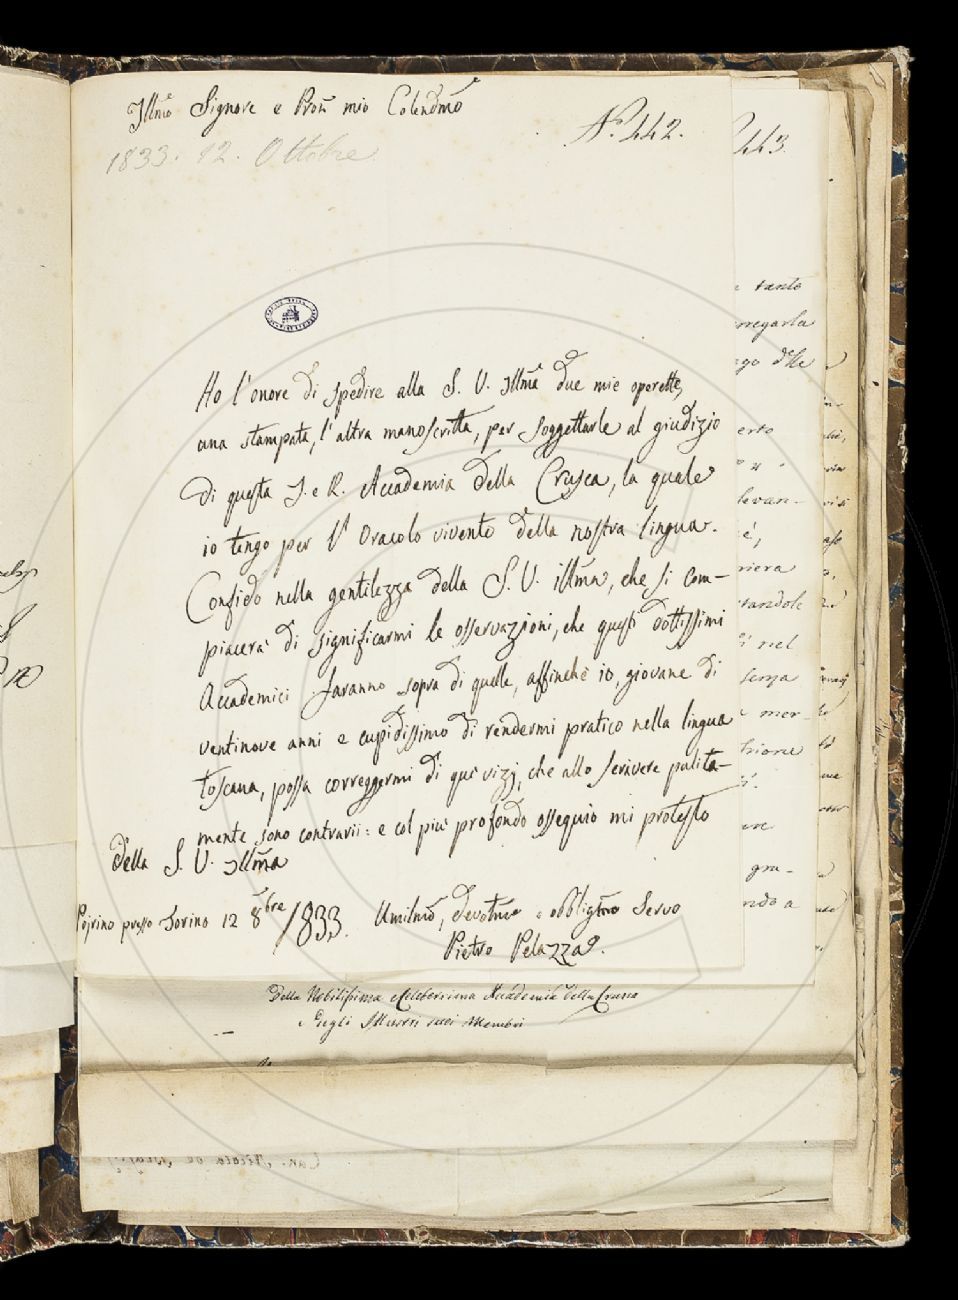 Illmo Signore e Pron mio Colendmo
N.° 442.
1833. 12. Ottobre
Ho l'onore di spedire alla S. V. Illma due mie operette,
una stampata, l'altra manoscritta, per soggettarle al giudizio
di questa I. e R. Accademia della Crusca, la quale
io tengo per l'Oracolo vivente della nostra lingua.
Confido nella gentilezza della S. V. illma, che si com-
piacerà di significarmi le osservazioni, che questi dottissimi
Accademici faranno sopra di quelle, affinchè io, giovane di
ventinove anni e cupidissimo di rendermi pratico nella lingua
toscana, possa correggermi di que' vizj, che allo scrivere pulita-
mente sono contrarii: e col più profondo ossequio mi protesto
Della S. V. Illma
Pojrino presso Torino 12 8bre/833.
Umilmo, devotmo e obbligmo Servo
Pietro Pelazza.
Della Nobilissima e Celeberrima Accademia della Crusca
suoi Membri
443.
tanto
nel
senza